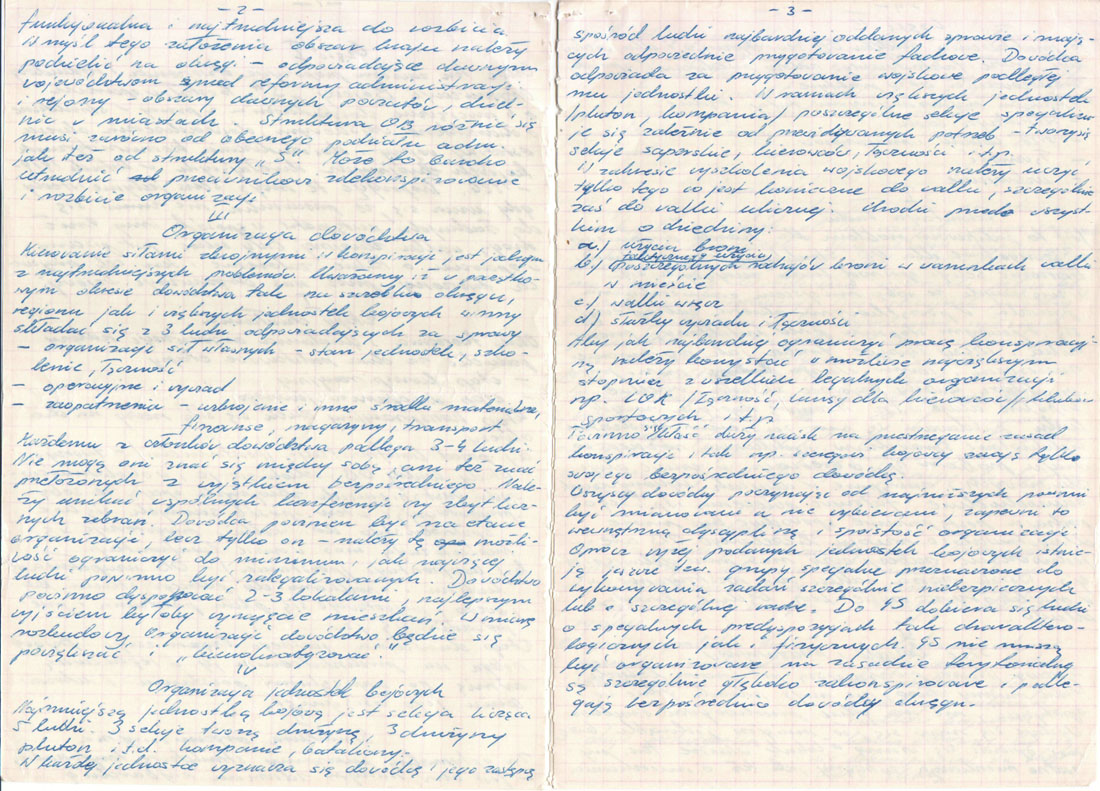 - 2 -
funkcjonalna i najtrudniejsza do rozbicia.
W myśl tego założenia obszar kraju należy
podzielić na okręgi - odpowiadające dawnym
województwom sprzed reformy administracji
i rejony - obszary dawnych powiatów, dziel-
nic w miastach. Struktura OB różnić się
musi zarówno od obecnego podziału adm.
jak też od struktury "S". Może to bardzo
utrudnić przeciwnikowi zdekonspirowanie
i rozbicie organizacji
III
Organizacja dowództwa
Kierowanie siłami zbrojnymi w konspiracji jest jednym
z najtrudniejszych problemów. Uważamy, iż w początko-
wym okresie dowództwa tak na szczeblu okręgu,
regionu jak i większych jednostek bojowych winny
składać się z 3 ludzi odpowiadających za sprawy
- organizacji sił własnych - stan jednostek, szko-
lenie, łączność
- operacyjne i wywiad
- zaopatrzenia - uzbrojenie i inne środki materiałowe,
finanse, magazyny, transport
Każdemu z członków dowództwa podlega 3-4 ludzi.
Nie mogą oni znać się między sobą, ani też znać
przełożonych z wyjątkiem bezpośredniego. Nale-
ży unikać wspólnych konferencji czy zbyt licz-
nych zebrań. Dowódca powinien być na etacie
organizacji, lecz tylko on - należy tę możli-
wość ograniczyć do minimum, jak najwięcej
ludzi powinno być zalegalizowanych. Dowództwo
powinno dysponować 2-3 lokalami, najlepszym
wyjściem byłoby wynajęcie mieszkań. W miarę
rozbudowy organizacji dowództwo będzie się
powiększać
IV
Organizacja jednostek bojowych
Najmniejszą jednostką bojową jest sekcja licząca
5 ludzi. 3 sekcje tworzą drużynę, 3 drużyny
pluton i.t.d. kompanie, bataliony.
W każdej jednostce wyznacza się dowódcę i jego zastępcę
- 3 -
spośród ludzi najbardziej oddanych sprawie i mają-
cych odpowiednie przygotowanie fachowe. Dowódca
odpowiada za przygotowanie wojskowe podległej
mu jednostki. W ramach większych jednostek
/pluton, kompania/ poszczególne sekcje specjalizu-
je się zależnie od przewidywanych potrzeb - tworzy się
sekcje saperskie, kierowców, łączności i t.p.
W zakresie wyszkolenia wojskowego należy uczyć
tylko tego co jest konieczne do walki, szczególnie
zaś do walki ulicznej. Chodzi przede wszyst-
kim o dziedziny:
a.) użycia broni
taktycznego użycia
b.) poszczególnych rodzajów broni w warunkach walki
w mieście
c.) walki wręcz
d.) służby wywiadu i łączności
Aby jak najbardziej ograniczyć pracę konspiracyj-
ną, należy korzystać w możliwie największym
stopniu z wszelkich legalnych organizacji
np. LOK /łączność, kursy dla kierowców/, klubów
sportowych i t.p.
Powinno się kłaść duży nacisk na przestrzeganie zasad
konspiracji i tak np. szeregowy bojowy zna tylko
swojego bezpośredniego dowódcę.
Wszyscy dowódcy poczynając od najniższych powinni
być mianowani a nie wybierani, zapewni to
wewnętrzną dyscyplinę i spoistość organizacji.
Oprócz wyżej podanych jednostek bojowych istnie-
ją jeszcze tzw. grupy specjalne przeznaczone do
wykonywania zadań szczególnie niebezpiecznych
lub o szczególnej wadze. Do GS dobiera się ludzi
o specjalnych predyspozycjach tak charaktero-
logicznych jak i fizycznych. GS nie muszą
być organizowane na zasadzie terytorialnej
są szczególnie głęboko zakonspirowane i podle-
gają bezpośrednio dowódcy okręgu.